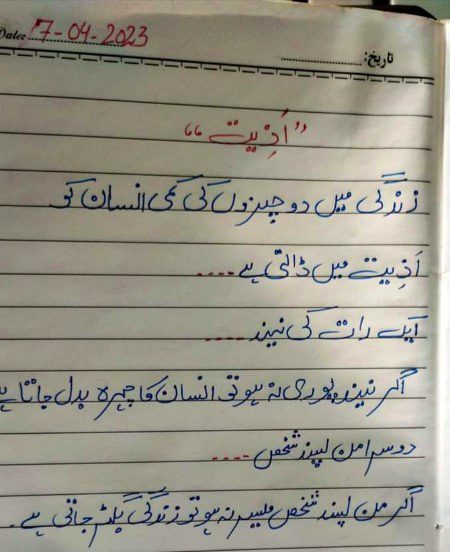 Date: 17-04-2023
تاریخ:
"اَذِیت"
زندگی میں دو چیزوں کی کمی انسان کو
اَذِیت میں ڈالتی ہے ....
ایک رات کی نیند ....
اگر نیند پوری نہ ہو تو انسان کا چہرہ بدل جاتا ہے
دوسرا من پسند شخص ....
اگر من پسند شخص میسر نہ ہو تو زندگی پلٹ جاتی ہے۔